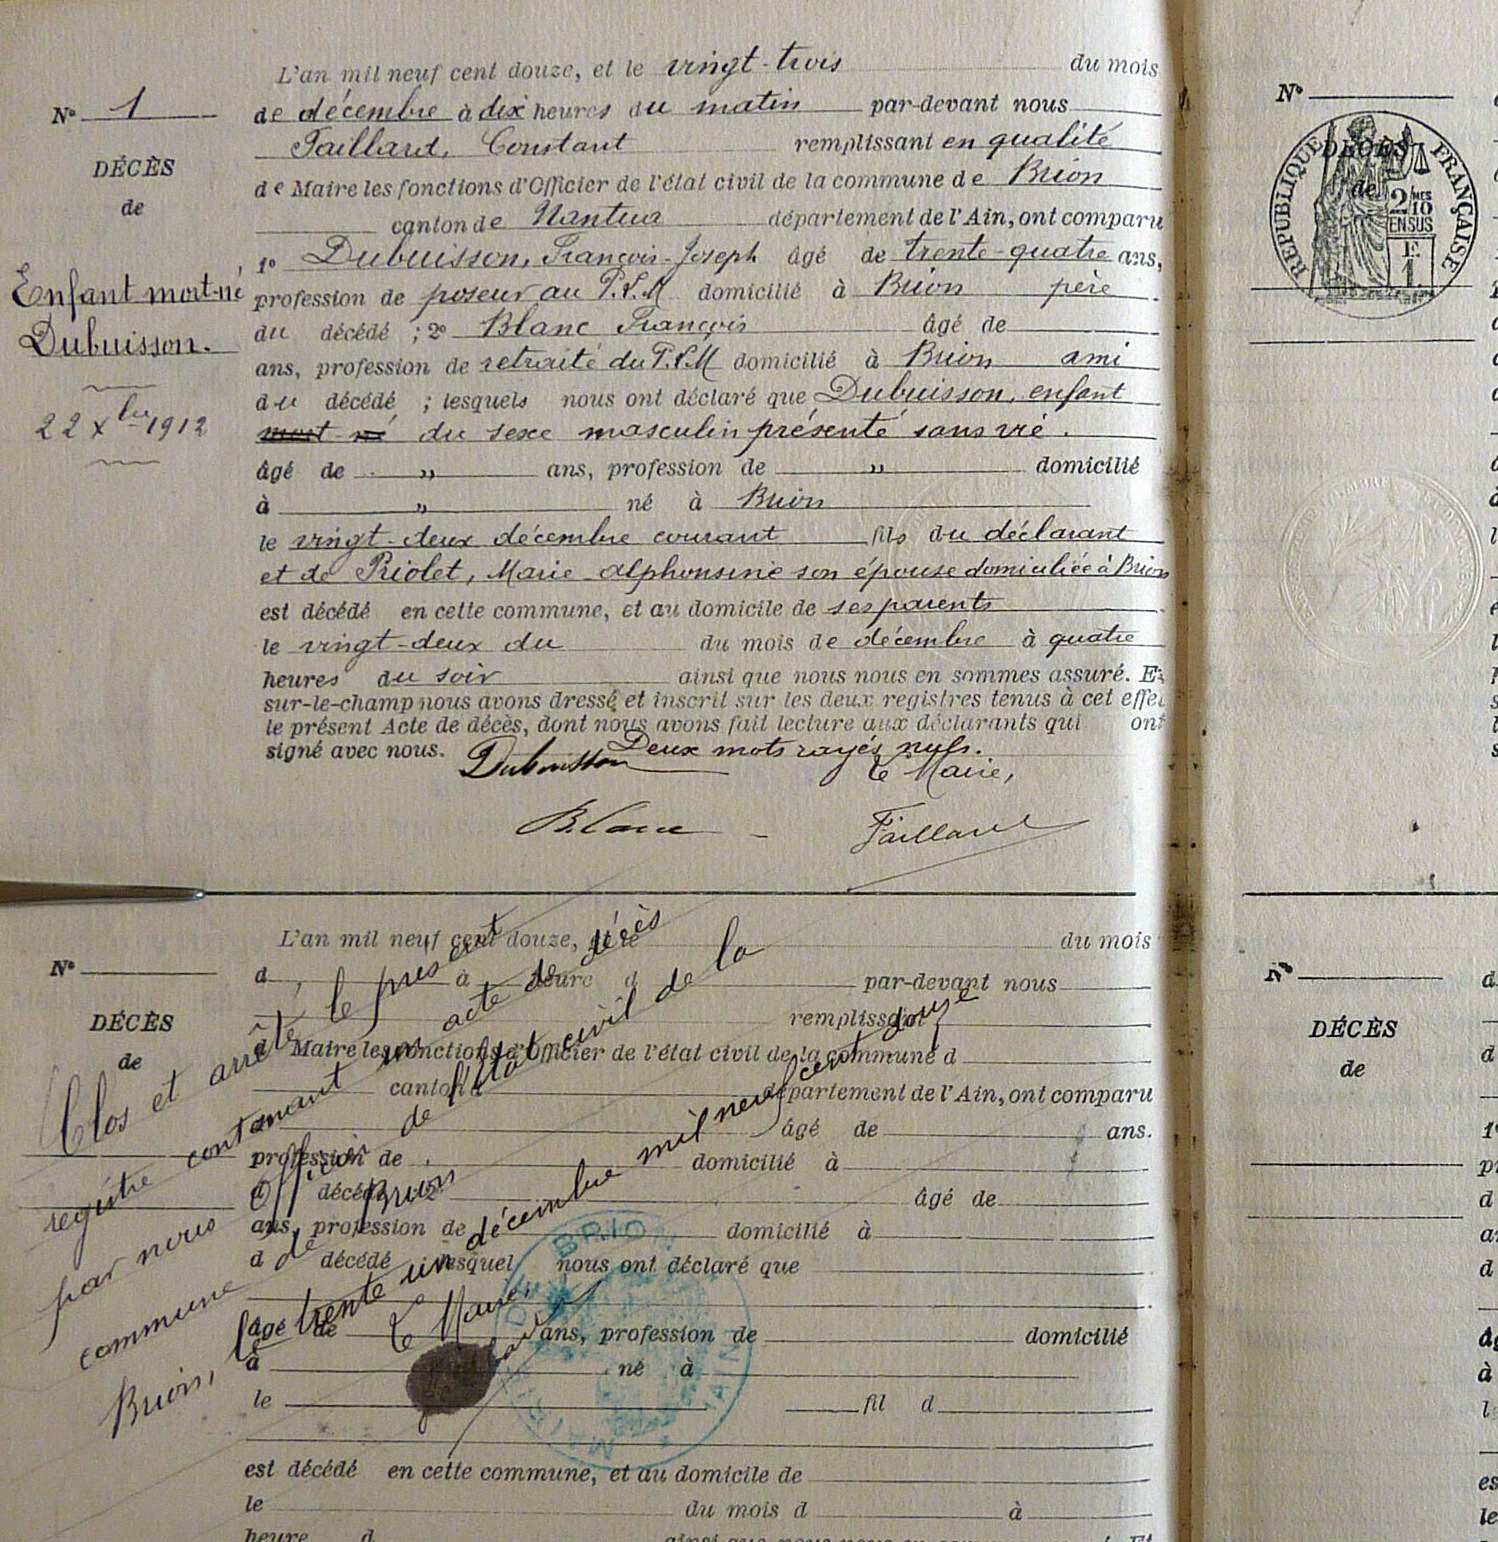 L'an mil neuf cent douze, et le vingt-trois du mois
N° 1
de décembre à dix heures du matin par-devant nous
Taillard, Constant remplissant en qualité
DÉCÈS
de Maire les fonctions d'Officier de l'état civil de la commune de Brion
de
canton de Nantua département de l'Ain, ont comparu
1° Dubuisson, François-Joseph âgé de trente-quatre ans,
Enfant mort-né
profession de poseur au P.L.M domicilié à Brion père
Dubuisson.
du décédé ; 2° Blanc François âgé de
ans, profession de retraité du P.L.M domicilié à Brion ami
du décédé ; lesquels nous ont déclaré que Dubuisson, enfant
22 Xbre 1912
mort né du sexe masculin présenté sans vie.
âgé de " ans, profession de " domicilié
à " né à Brion
le vingt-deux décembre courant fils du déclarant
et de Riolet, Marie alphonsine son épouse domiciliée à Brion
est décédé en cette commune, et au domicile de ses parents
le vingt-deux du du mois de décembre à quatre
heures du soir ainsi que nous nous en sommes assuré. Et
sur-le-champ nous avons dressé et inscrit sur les deux registres tenus à cet effet
le présent Acte de décès, dont nous avons fait lecture aux déclarants qui ont
signé avec nous. Deux mots rayés nuls.
Dubuisson Le Maire,
Blanc Taillard
L'an mil neuf cent douze, et le du mois
N°
d à heure d par-devant nous
remplissant
DÉCÈS
d Maire les fonctions d'Officier de l'état civil de la commune d
de
canton d département de l'Ain, ont comparu
âgé de ans.
profession de domicilié à
d décédé 2° âgé de
ans, profession de domicilié à
d décédé lesquel nous ont déclaré que
âgé de ans, profession de domicilié
à né à
le fil d
est décédé en cette commune, et au domicile de
le du mois d à
heure d
Clos et arrêté le présent
registre contenant un acte de décès
par nous Officier de l'état civil de la
commune de Brion
Brion, le trente un décembre mil neuf cent douze
Le Maire,
MAIRIE DE BRION
AIN
N°
DÉCÈS
de
RÉPUBLIQUE FRANÇAISE
2/10 MES
EN SUS
F.
1
N°
DÉCÈS
de